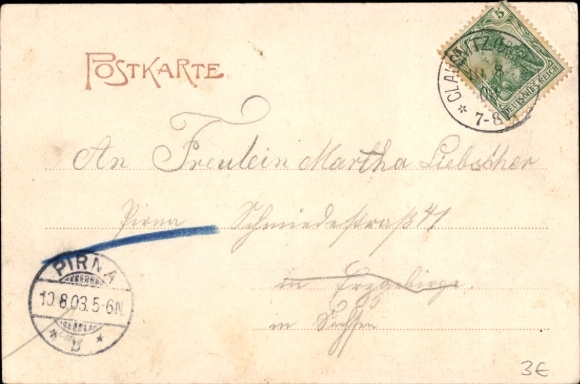 POSTKARTE
5
DEUTSCHES REICH
CLAUSNITZ
7-8
An Freulein Martha Liebscher
Pirna Schmiedestraß 41
in Erzgebirge
in Sachsen
PIRNA
10.8.03.5-6N.
* b *
3€